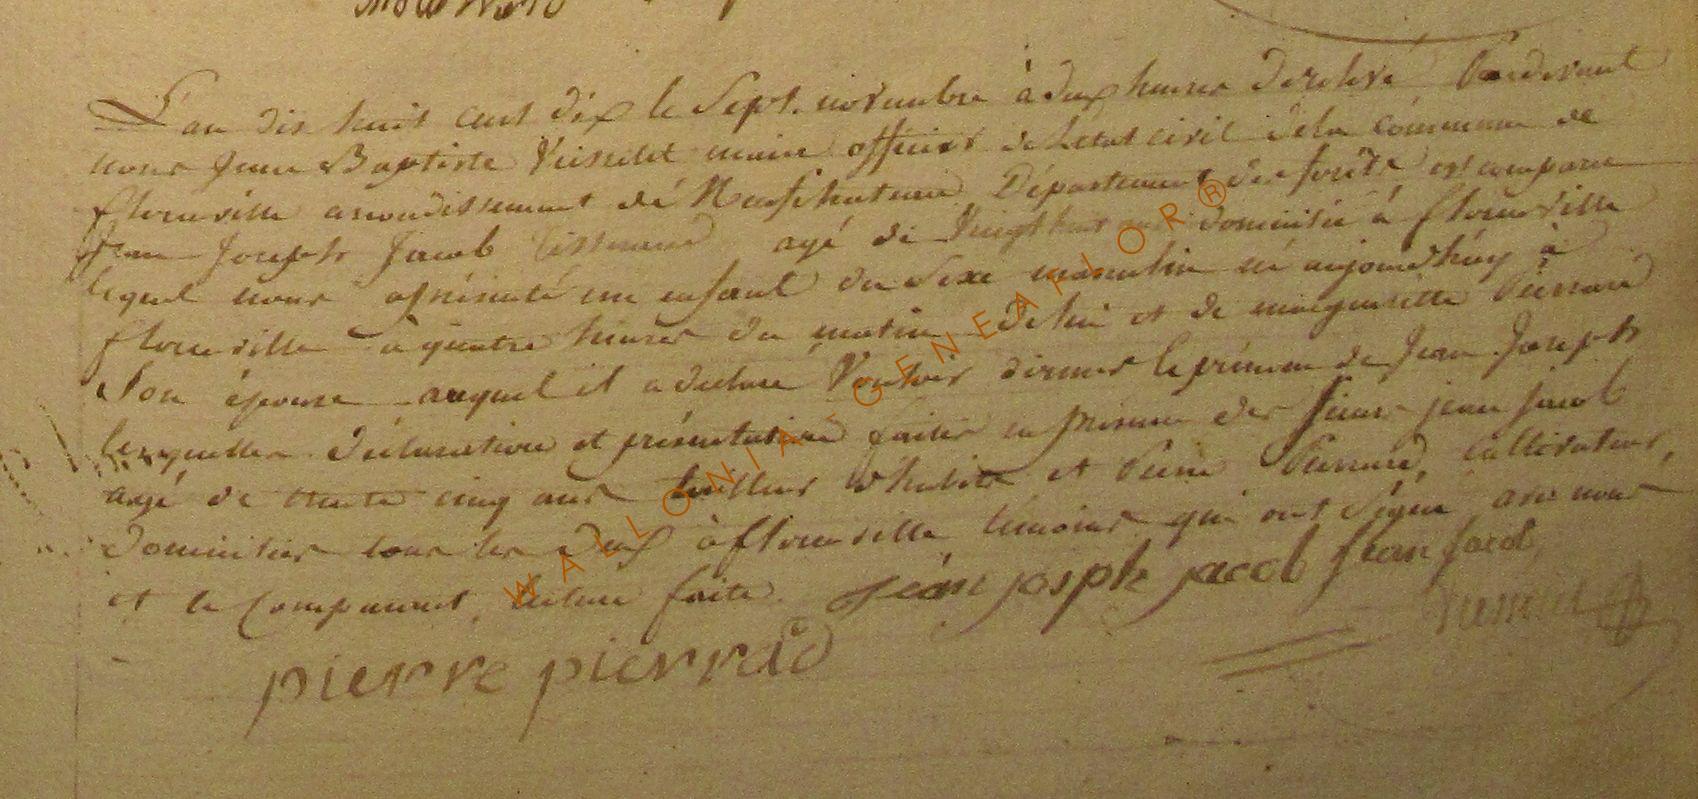 L'an dix huit cent dix le Sept novembre à deux heures de relevé Pardevant
nous Jean Baptiste maire officier de Letat civil dela commune de
florenville arrondissement de Neufchateau Département des forêts est comparu
Jean Joseph Jacob tisserand agé de Vingt huit ans domicilié à florenville
lequel nous a présenté un enfant du Sexe masculin né aujourdhuy à
florenville à quatre heures du matin de lui et de marguerite Pierrard
Son épouse auquel il a déclaré Vouloir donner le prénom de Jean Joseph
lesquelles déclaration et présentation faites en présence des Sieurs jean jacob
agé de trente cinq ans tailleur d'habits et Pierre Pierrard, cultivateur,
domiciliés tous les deux à florenville témoins qui ont Signé avec nous
et le comparant, lecture faite. Jean josph jacob jean jacob
pierre pierrard
WALLONIA-GENEAFLOR®